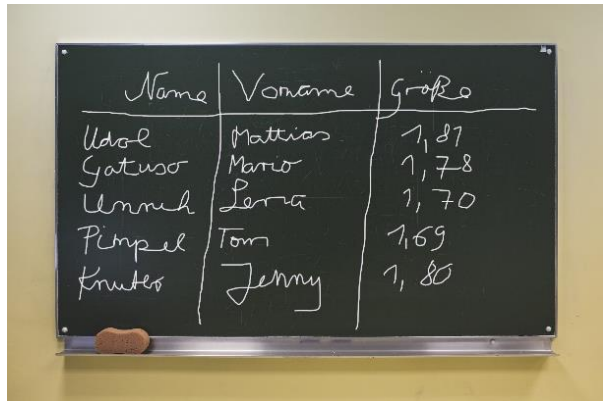 Name Vorname Größe
Udol Mattias 1,81
Gatuso Mario 1,78
Unnuh Lerra 1,70
Pimpel Tom 1,69
Jenny 1,80